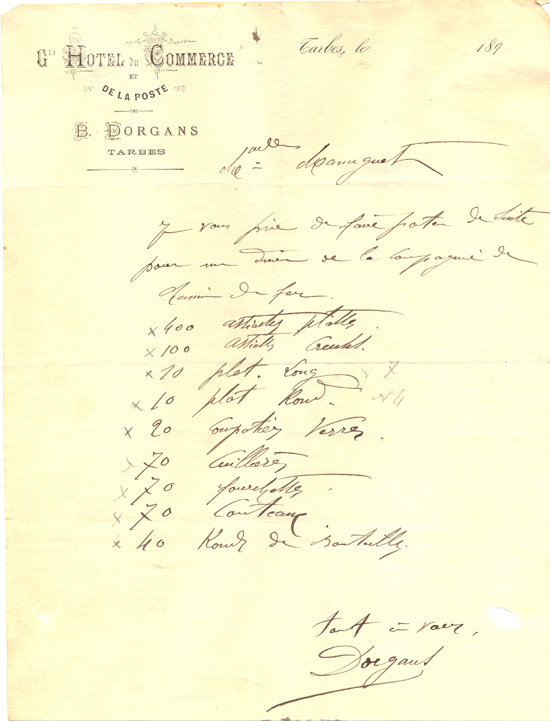 Gd HOTEL du COMMERCE
ET
DE LA POSTE
B. DORGANS
TARBES
Tarbes, le 189
Mselle Manuguet
Je vous prie de faire porter de suite
pour un diner de la Compagnie de
Chemin de fer.
x 400 assiettes plattes.
x 100 assiettes Creuses.
x 10 plat. Long n 7
x 10 plat Rond. n 4
x 20 Compotiers Verres.
x 70 Cuillieres
x 70 fourchettes
x 70 Couteaux
x 40 Ronds de bouteille.
tout à vous,
Dorgans